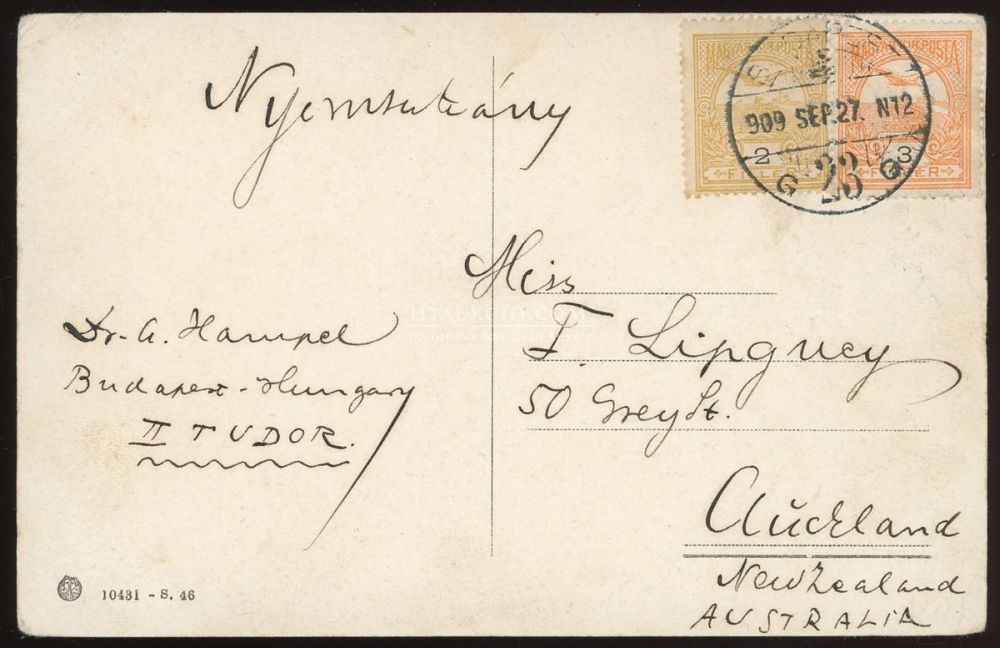 Nyomtatvány
MAGYAR KIR. POSTA
2
FILLÉR
3
FILLÉR
909 SEP.27. N12
G 23 G
Miss
F. Lipguey
50 Grey St.
Auckland
New Zealand
AUSTRALIA
Dr. A. Hampel
Budapest - Hungary
II TUDOR.
10431 - S. 46
HTAUKCIO.COM